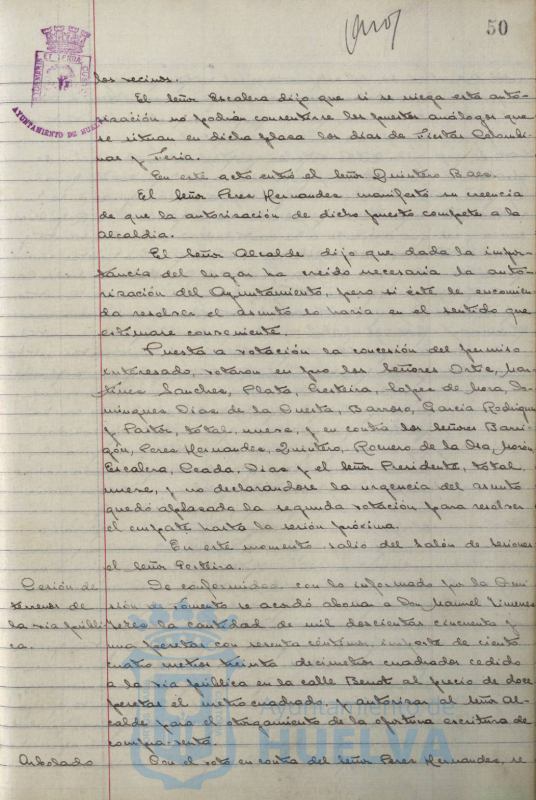 50
AYUNTAMIENTO DE HUELVA
los vecinos.
El Señor Escalera dijo que si se niega esta auto-
rización no podrán consentirse los puestos análogos que
se situan en dicha plaza los dias de Fiestas Colombi-
nas y Feria.
En este acto entró el Señor Quintero Baez.
El Señor Perez Hernandez manifestó su creencia
de que la autorización de dicho puesto compete a la
alcaldia.
El Señor Alcalde dijo que dada la impor-
tancia del lugar ha creido necesaria la auto-
rización del Ayuntamiento, pero si éste le encomien-
da resolver el asunto lo haria en el sentido que
estimase conveniente.
Puesta a votación la concesión del permiso
interesado, votaron en pro los Señores Ortiz, Mar-
tinez Sanchez, Plata, Gesteira, Lopez de Mora, Do-
minguez Diaz de la Cuesta, Barroso, Garcia Rodriguez
y Pastor, total, nueve, y en contra los Señores Barri-
gón, Perez Hernandez, Quintero, Romero de la Osa, Morón
Escalera, Ceada, Diaz y el Señor Presidente, total
nueve, y no declarandose la urgencia del asunto
quedó aplazada la segunda votación para resolver
el empate hasta la sesión próxima.
En este momento salió del Salón de Sesiones
el Señor Gesteira.
Cesión de
terrenos de
la via públi-
ca.
De conformidad con lo informado por la Comi-
sión de Fomento se acordó abonar a Don Manuel Jimenez
la cantidad de mil doscientas cincuenta y
una pesetas con sesenta céntimos, importe de ciento
cuatro metros treinta decimetros cuadrados cedido
a la via pública en la calle Benot al precio de doce
pesetas el metro cuadrado y autorizar al Señor Al-
calde para el otorgamiento de la oportuna escritura de
compra-venta.
Arbolado
Con el voto en contra del Señor Perez Hernandez, se
Ayuntamiento de
HUELVA